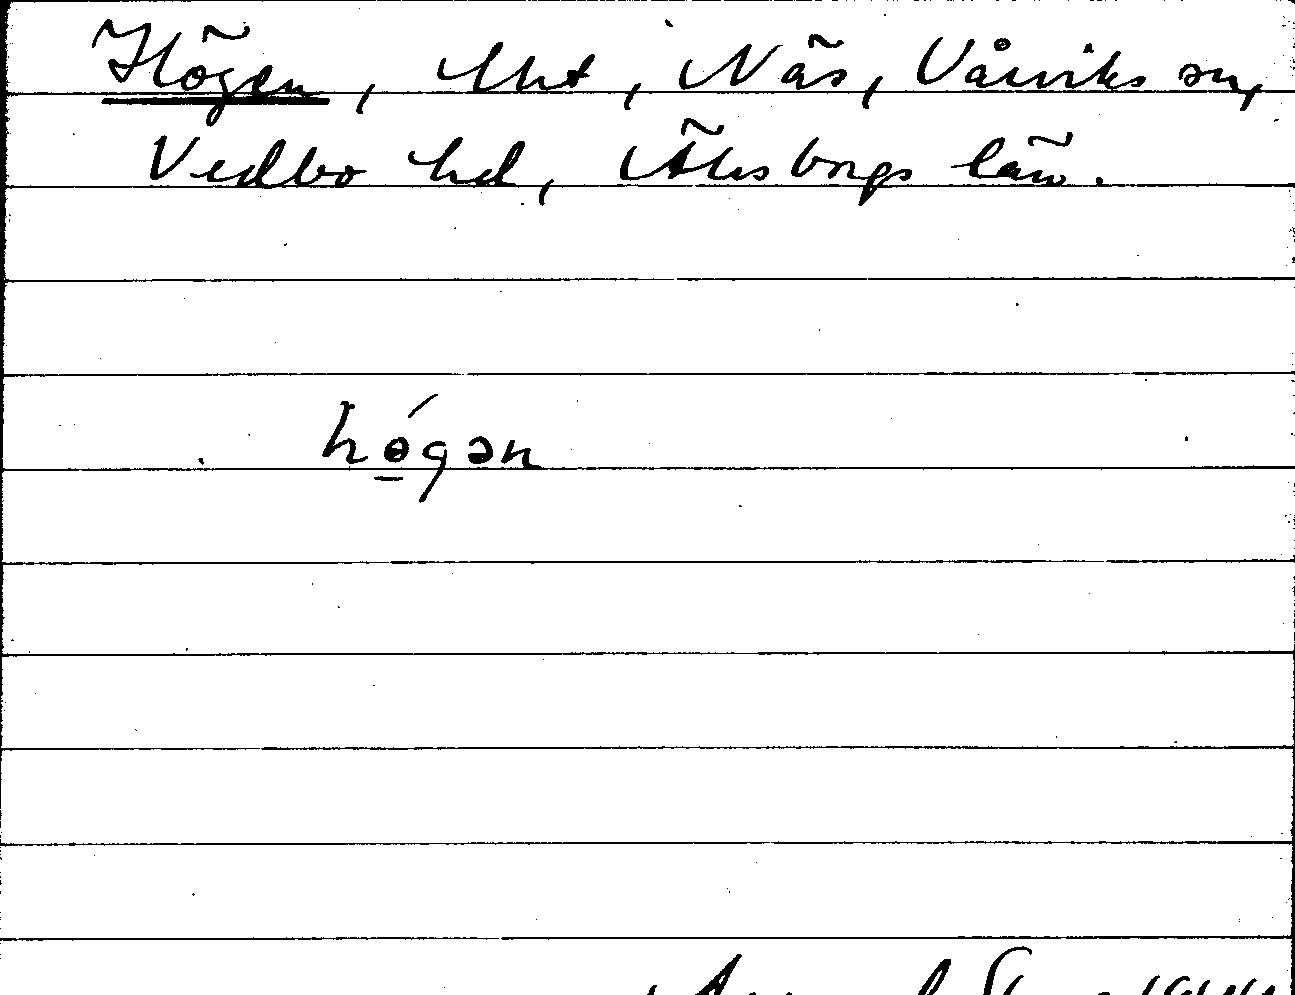 Högen, lht, Näs, Vårviks sn,
Vedbo hd, Älvsborgs län.
hǿ̱gən